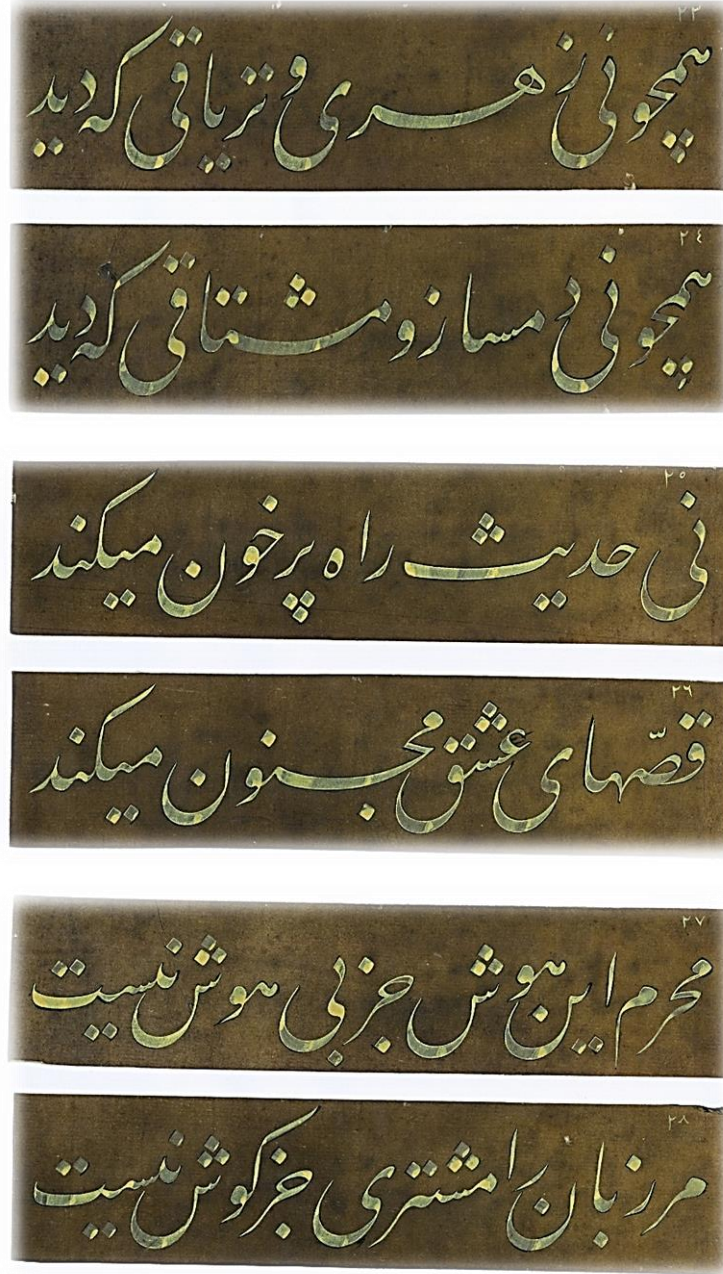 ٢٣
همچو نی زهری و تریاقی که دید
٢٤
همچو نی دمساز و مشتاقی که دید
٢٥
نی حدیث راه پرخون میکند
٢٦
قصّهای عشق مجنون میکند
٢٧
محرم این هوش جز بی هوش نیست
٢٨
مر زبان را مشتری جز کوش نیست